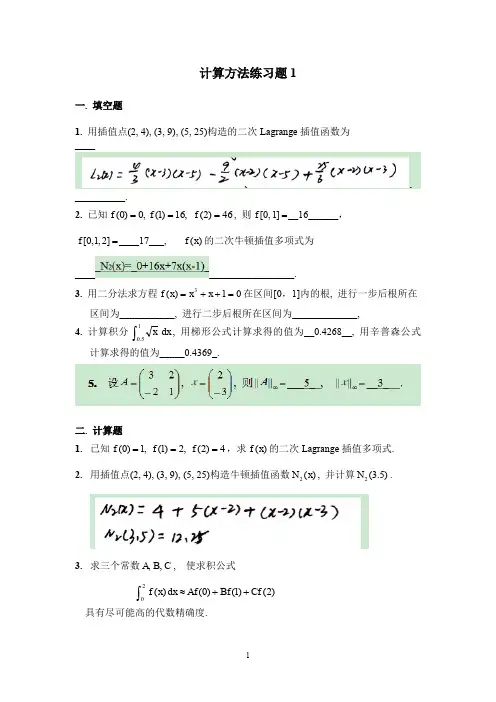 计算方法练习题1
一. 填空题
1. 用插值点(2, 4), (3, 9), (5, 25)构造的二次 Lagrange 插值函数为
____
L₂(x) = 4/3 (x-3)(x-5) - 9/2 (x-2)(x-5) + 25/6 (x-2)(x-3)
__________.
2. 已知 f(0) = 0, f(1) = 16, f(2) = 46, 则 f[0, 1] =__16______,
f[0,1,2] =____17___, f(x) 的二次牛顿插值多项式为
____ N₂(x)=_0+16x+7x(x-1) _________________.
3. 用二分法求方程 f(x) = x³ + x - 1 = 0 在区间[0，1]内的根, 进行一步后根所在
区间为___________, 进行二步后根所在区间为_____________,
4. 计算积分 ∫₀.₅¹ √x dx, 用梯形公式计算求得的值为__0.4268__, 用辛普森公式
计算求得的值为_____0.4369_.
5. 设 A = (3 2; -2 1), x = (2; -3), 则 ||A||∞ = ___5__, ||x||∞ = ___3___.
二. 计算题
1. 已知 f(0) = 1, f(1) = 2, f(2) = 4，求 f(x) 的二次 Lagrange 插值多项式.
2. 用插值点(2, 4), (3, 9), (5, 25)构造牛顿插值函数 N₂(x), 并计算 N₂(3.5) .
N₂(x) = 4 + 5(x-2) + (x-2)(x-3)
N₂(3,5) = 12,25
3. 求三个常数 A, B, C , 使求积公式
∫₀² f(x) dx ≈ Af(0) + Bf(1) + Cf(2)
具有尽可能高的代数精确度.
1